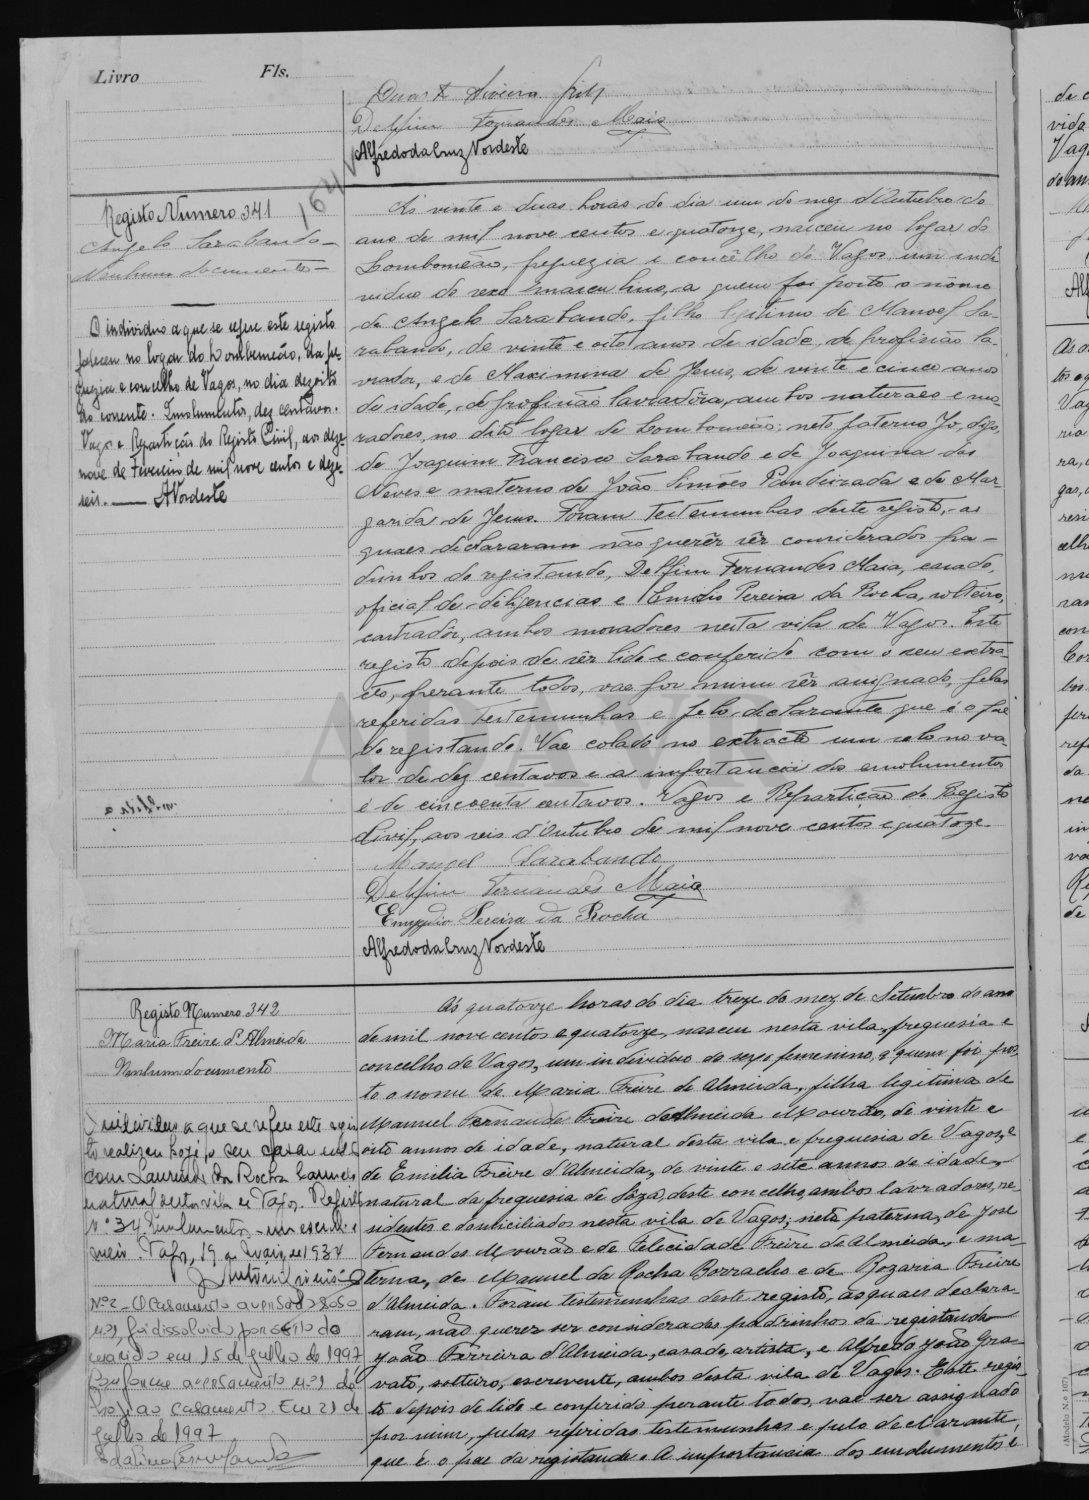 Livro Fls.
Delfim Fernandes Maia
Alfredo da Cruz Nordeste
164
Registo Numero 341
Angelo Sarabando
Nenhum documento
O individuo a que se refere este registo
faleceu no logar do Lombomeão, da fre-
guezia e concelho de Vagos, no dia dezoito
do corrente. Emolumentos, dez centavos.
Vagos e Repartição do Registo Civil, aos deze-
nove de Fevereiro de mil nove centos e deze-
seis. ANordeste
Ás vinte e duas horas do dia um do mez d'Outubro do
ano de mil nove centos e quatorze, nasceu no logar do
Lombomeão, freguezia e concêlho de Vagos um indi
viduo do sexo masculino, a quem foi posto o nome
de Angelo Sarabando, filho legitimo de Manoel Sa-
rabando, de vinte e oito anos de idade, de profissão la-
vrador, e de Maximina de Jesus, de vinte e cinco anos
de idade, de profissão lavradôra, ambos naturaes e mo-
radores, no dito logar de Lombomeão; neto paterno Jo, digo,
de Joaquim Francisco Sarabando e de Joaquina das
Neves e materno de João Simões Pandeirada e de Mar-
garida de Jesus. Foram testemunhas deste registo, as
quaes declararam não querêr sêr considerados pa-
drinhos do registando, Delfim Fernandes Maia, casado,
oficial de diligencias e Emidio Pereira da Rocha, solteiro,
cartradôr, ambos moradores nesta vila de Vagos. Este
registo depois de sêr lido e conferido com o seu extra-
cto, perante todos, vae por mim sêr assignado, pelas
referidas testemunhas e pelo declarante que é o pae
do registando. Vae colado no extracto um selo no va-
lor de dez centavos e a importancia dos emolumentos
é de cincoenta centavos. Vagos e Repartição do Registo
Civil, aos seis d'Outubro de mil nove centos e quatorze.
Manoel Sarabando
Delfim Fernandes Maia
Emygdio Pereira da Rocha
Alfredo da Cruz Nordeste
Registo Numero 342
Maria Freire d'Almeida
Nenhum documento
O individuo a que se refere este regis
to realizou hoje o seu casamento
com Laurindo da Rocha
natural desta vila de Vagos. Registo
nº 34. Emolumentos - um escudo e
meio. Vagos, 19 de Maio de 1934
Nº 2 - O casamento averbado sob o
nº 1, foi dissolvido por óbito do
marido em 15 de Julho de 1997
Conforme averbamento nº 1 de
hoje ao casamento. Em 21 de
Julho de 1997
Ás quatorze horas do dia treze do mez de Setembro do ano
de mil nove centos e quatorze, nasceu nesta vila, freguesia e
concelho de Vagos, um individuo do sexo femenino, a quem foi pos
to o nome de Maria Freire de Almeida, filha legitima de
Manuel Fernandes Freire de Almeida Mourão, de vinte e
oito annos de idade, natural desta vila e freguesia de Vagos, e
de Emilia Freire d'Almeida, de vinte e sete annos de idade,
natural da freguesia de Sôza, deste concelho, ambos lavradores, re-
sidentes e domiciliados nesta vila de Vagos; neta paterna, de José
Fernandes Mourão e de Felecidade Freire de Almeida, e ma-
terna, de Manuel da Rocha Borracho e de Rozaria Freire
d'Almeida. Foram testemunhas deste registo, as quaes declara-
ram, não querer ser considerados padrinhos da registanda
João Ferreira d'Almeida, casado, artista, e Alfredo João Gra-
vato, solteiro, escrevente, ambos desta vila de Vagos. Este regis-
to depois de lido e conferido perante todos, vae ser assignado
por mim, pelas referidas testemunhas e pelo declarante,
que é o pae da registanda. A importancia dos emolumentos é